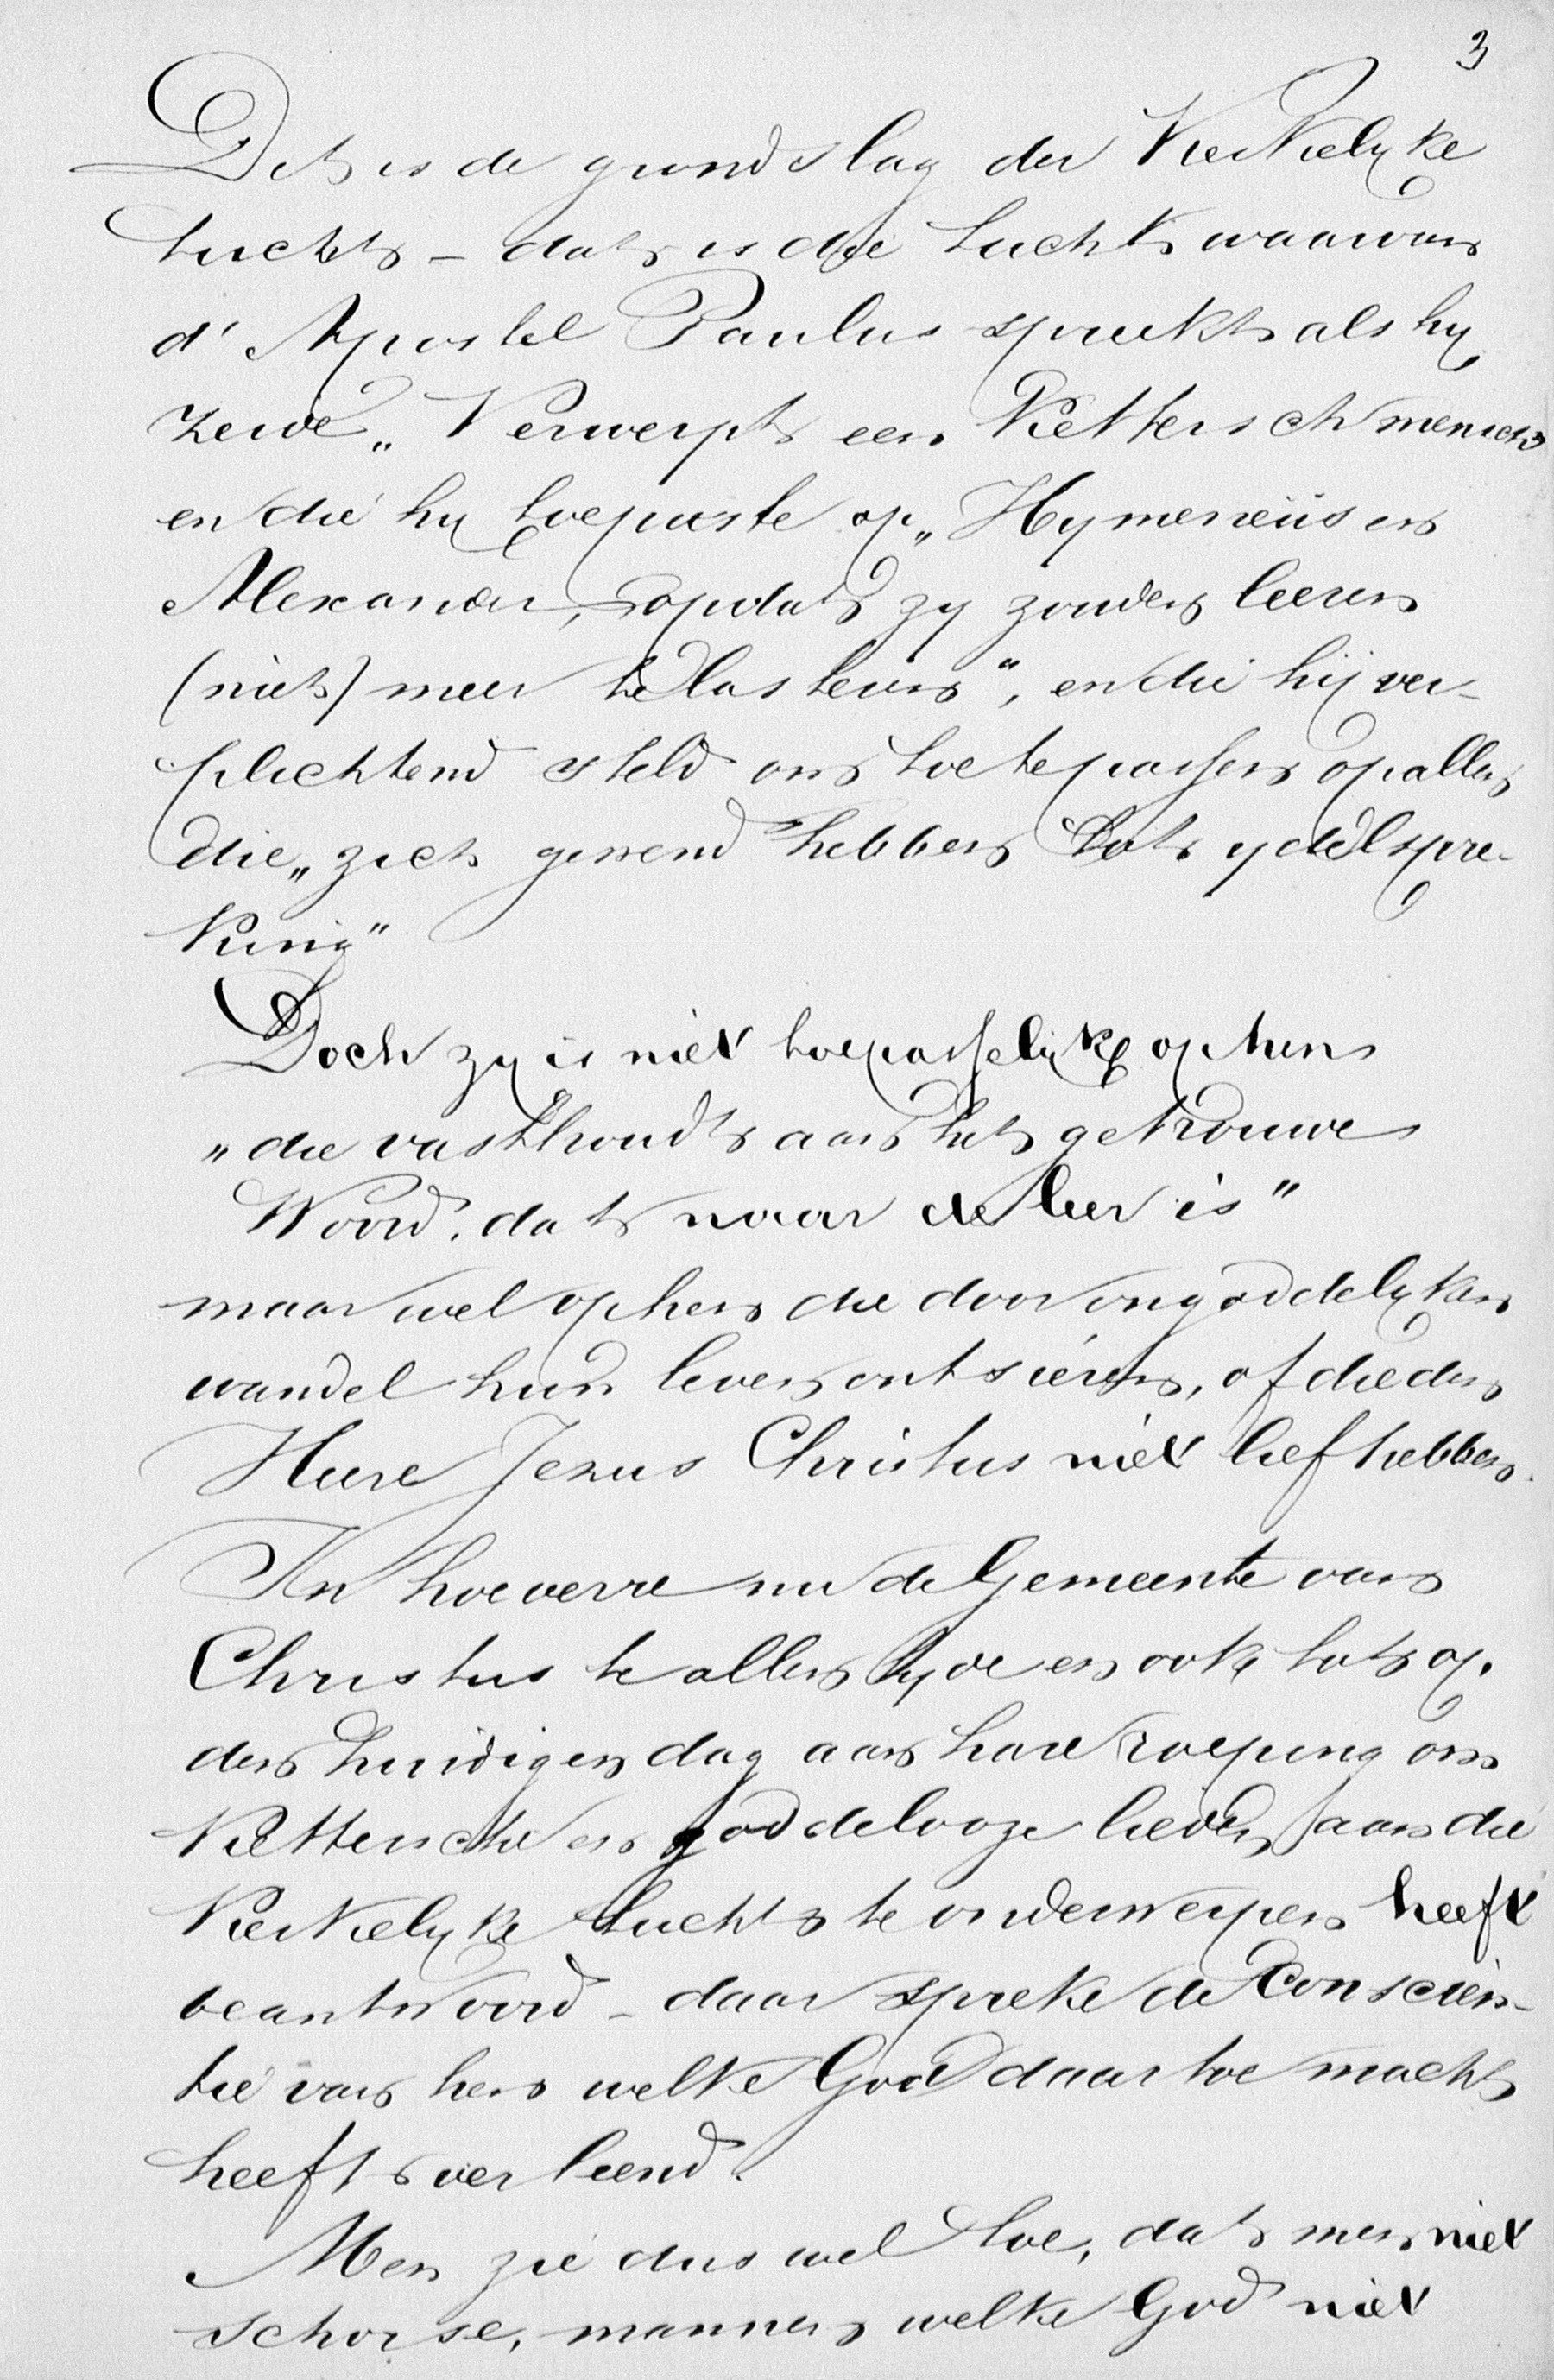 3
Dit is de grondslag der Kerkelyke
tucht – dat is die tucht waarvan
d' Apostel Paulus spreekt als hy
zeide „Verwerpt een Kettersch mensch
en die hy toepaste op „Hymeneüs en
Alexander, opdat zy zouden leeren
(niet) meer te lasteren", en die hij ver-
plichtend steld om toetepassen op allen
die „zich gewend hebben tot ydelspre-
king"
Doch zy is niet toepasselijk op hen
„die vasthoudt aan het getrouwe
Woord, dat naar de leer is"
maar wel op hen die door ongoddelyken
wandel hun leven ontsieren, of die den
Heere Jezus Christus niet lief hebben.
In hoeverre nu de Gemeente van
Christus te allen tyde en ook tot op
den huidigen dag aan hare roeping om
Kettersche en goddelooze lieden aan die
Kerkelyke tucht te onderwerpen heeft
beantwoord – daar spreke de Conscien-
tie van hen welke God daartoe macht
heeft verleend.
Men zie dus wel toe, dat men niet
schorse, mannen welke God niet